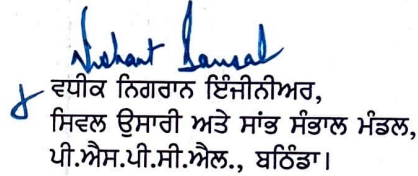 Nishant Bansal
ਵਧੀਕ ਨਿਗਰਾਨ ਇੰਜੀਨੀਅਰ,
ਸਿਵਲ ਉਸਾਰੀ ਅਤੇ ਸਾਂਭ ਸੰਭਾਲ ਮੰਡਲ,
ਪੀ.ਐਸ.ਪੀ.ਸੀ.ਐਲ., ਬਠਿੰਡਾ।